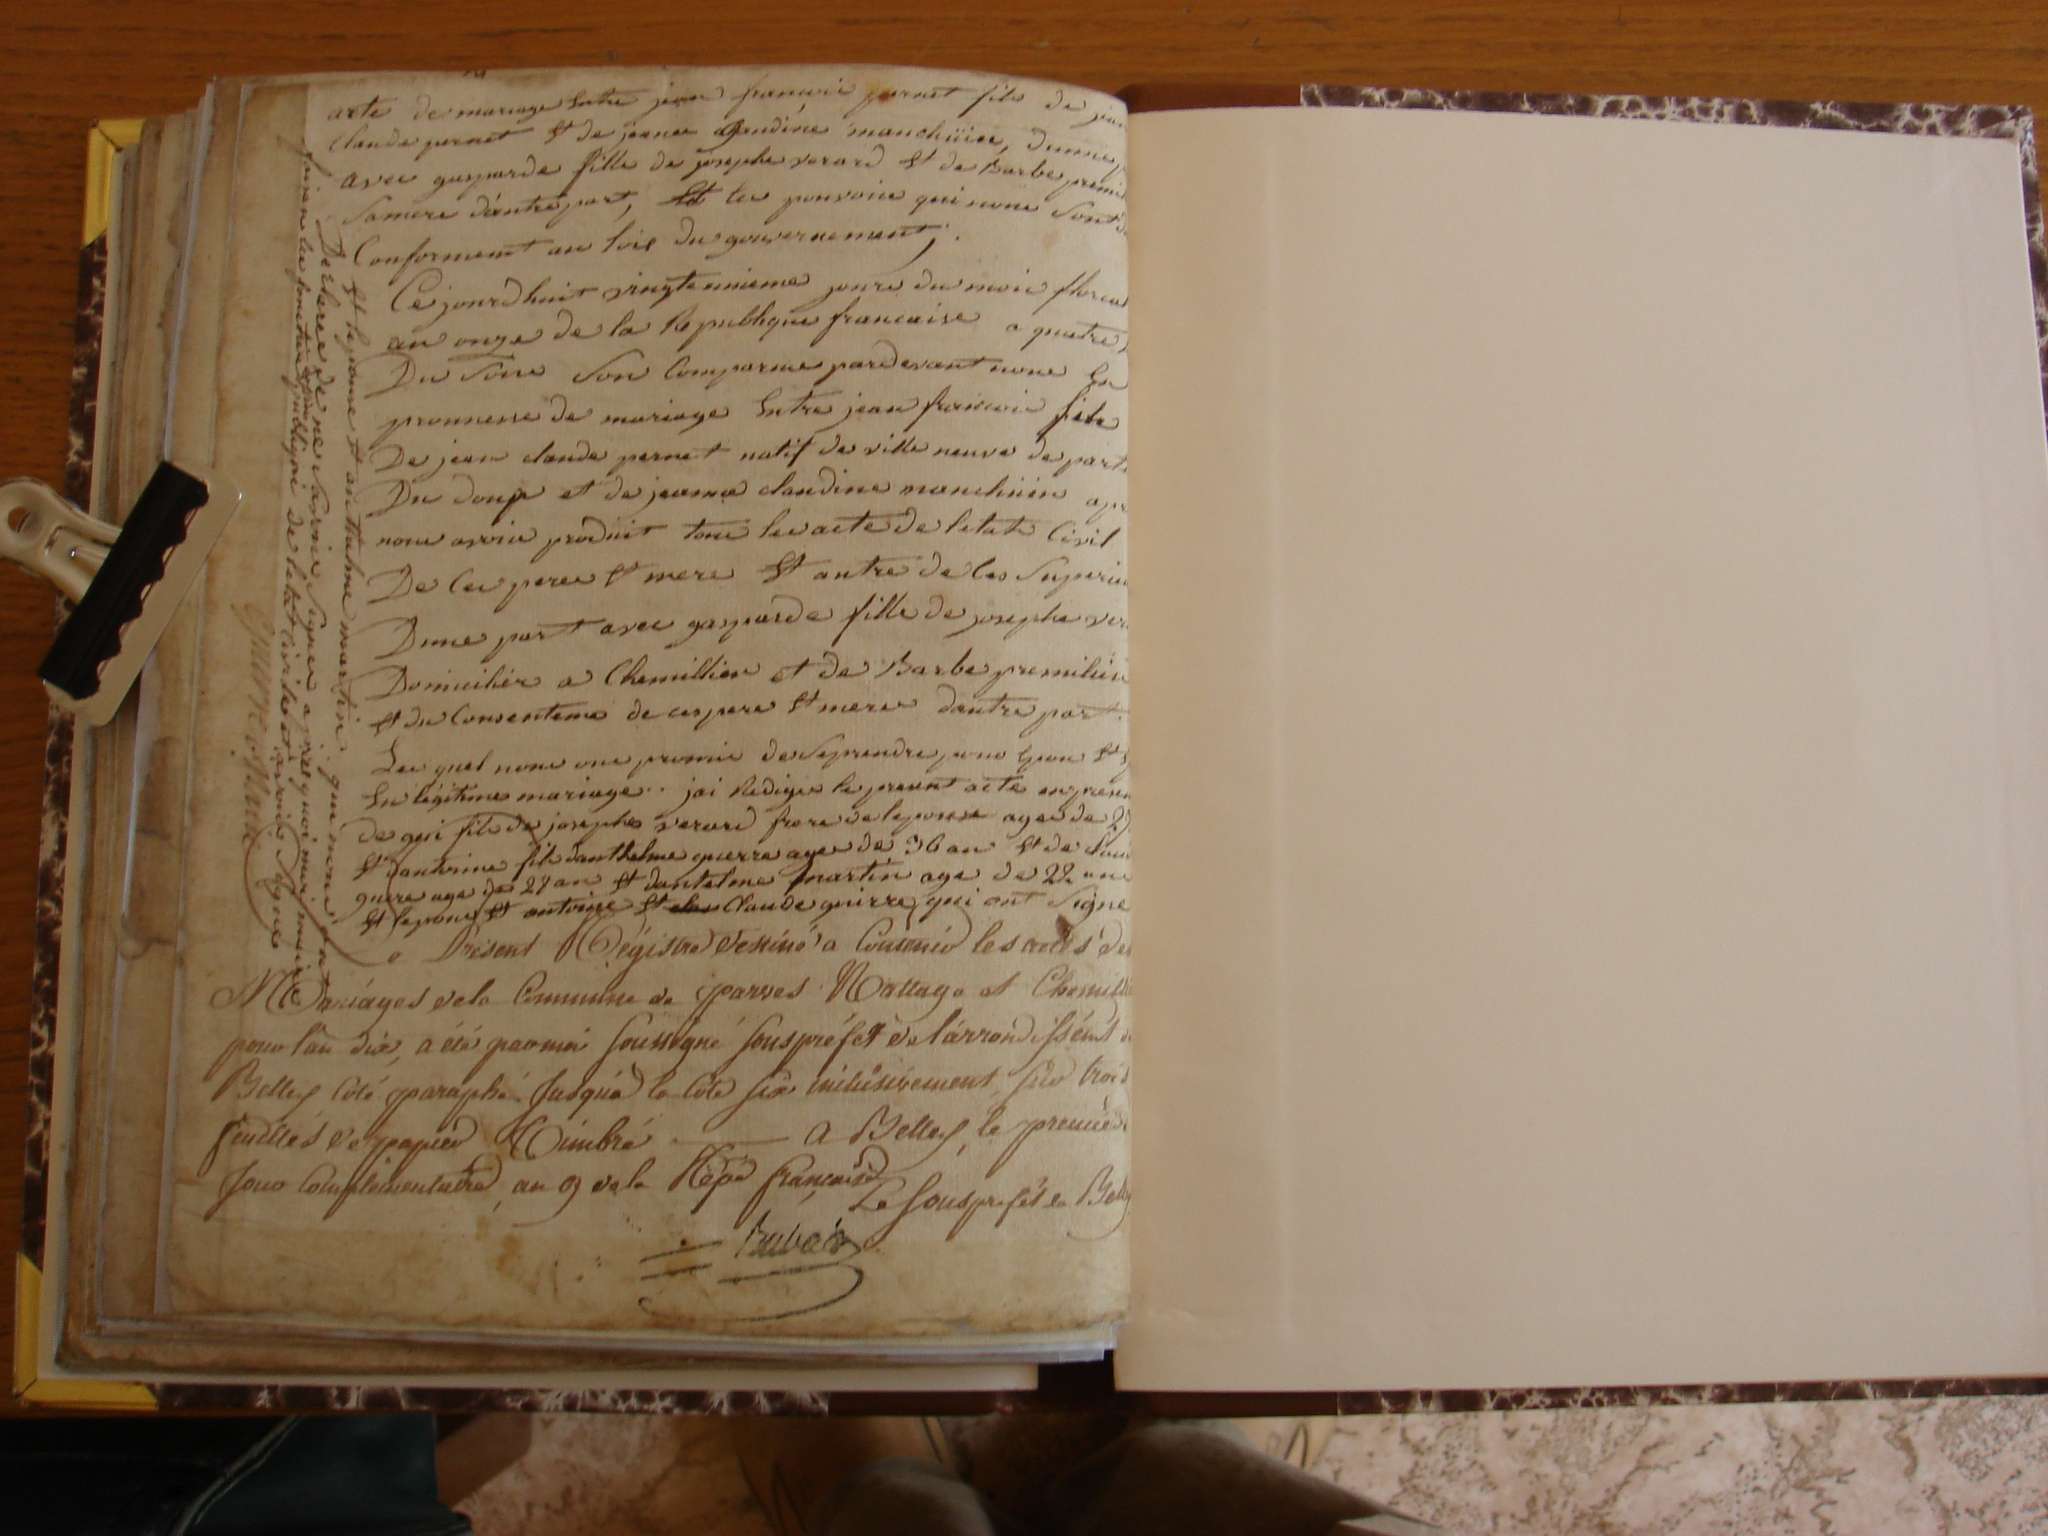 acte de mariage Entre jean francois pernet fils de jean
claude pernet Et de jeanne claudine manchüin, dunne p
avec gasparde fille de josephe verard Et de Barbe premil
samere dautre part, Et les pouvoire qui nous sont de
Conforment au loix du gouvernement;
Ce jourdhuit vingtenunieme joure du mois floreal
an onze de la Republique francaise a quatre
Du soire son Comparue pardevant nous En
pronnesse de mariage Entre jean francois fils
De jean claude pernet natif de ville neuve departe
Du doup et de jeanne claudine manchüin apre
nous avoir produit tous les acte de letat Civil
De Ces peres Et mere Et autre de Ces superieu
Dune part avec gasparde fille de josephe ver
Domiciliér a Chemillien et de Barbe premiliu
Et du Consenteme de ces pere Et mere dautre part
Les quel nous ons promis de seprendre pour Epoux Et
En legitime mariage.. jai Rediger le present acte enpresen
de gui fils de josephe verard frere de lepouse age de 2
Et dantoine fils danthelme guerre age de 36 an Et de Clau
guere age de 27 an Et dantelme martin age de 22 ans
Et lepouse Et antoine Et Claude guirre qui ont Signe
Et lepouse et anthelme martin qui nous ont
Declare de ne savoir signer apres quoi moi maire
faisan les fonction publique de letat civile avoir Signer
guerre Maire
Le Présent Régistre destiné a Contenir les actes de
Mariages de la Commune de Parves Nattage et Chemillieu
pour l'an dix, a été par moi soussigné souspréfet de l'arrondissémt de
Belley Coté paraphé jusqu'a la cote six inclusivement, sur trois
feuilles de papier Timbré — A Belley, le premier
jour complémentaire, an 9 de la Répe française
Le souspréfet de Belley